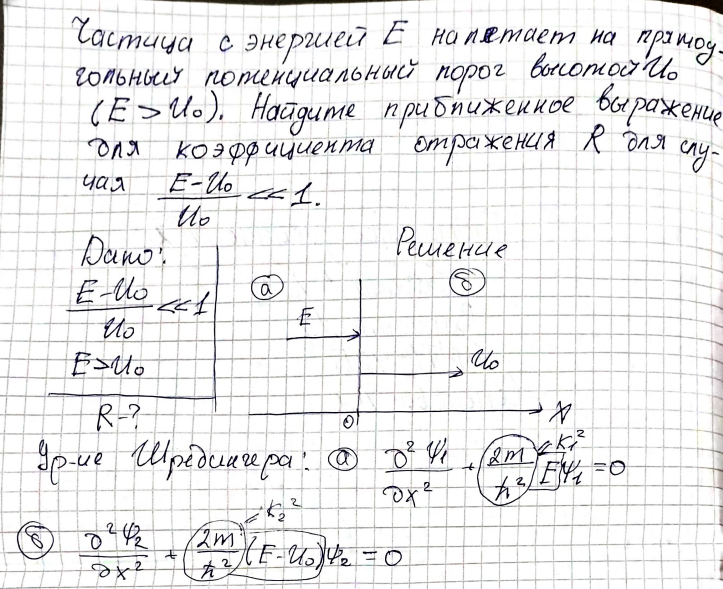 Частица с энергией E налетает на прямоу-
гольный потенциальный порог высотой U₀
(E > U₀). Найдите приближенное выражение
для коэффициента отражения R для слу-
чая (E-U₀)/U₀ << 1.
Дано:
(E-U₀)/U₀ << 1
E>U₀
R-?
Решение
а
б
E
U₀
0
X
Ур-ие Шредингера: а ∂²Ψ₁/∂x² + 2m/ħ² E Ψ₁ = 0
= K₁²
= K₂²
б ∂²Ψ₂/∂x² + 2m/ħ² (E-U₀) Ψ₂ = 0